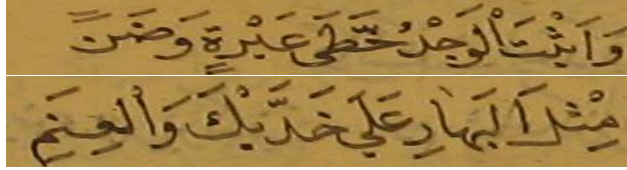 وَاَثْبَتَ اْلوَجْدُ خَطَّىْ عَبْرَةٍ وَضَنً
مِثْلَ اَلبَهَارِ عَلَي خَدَّيْكَ وَاْلعَنَمِ